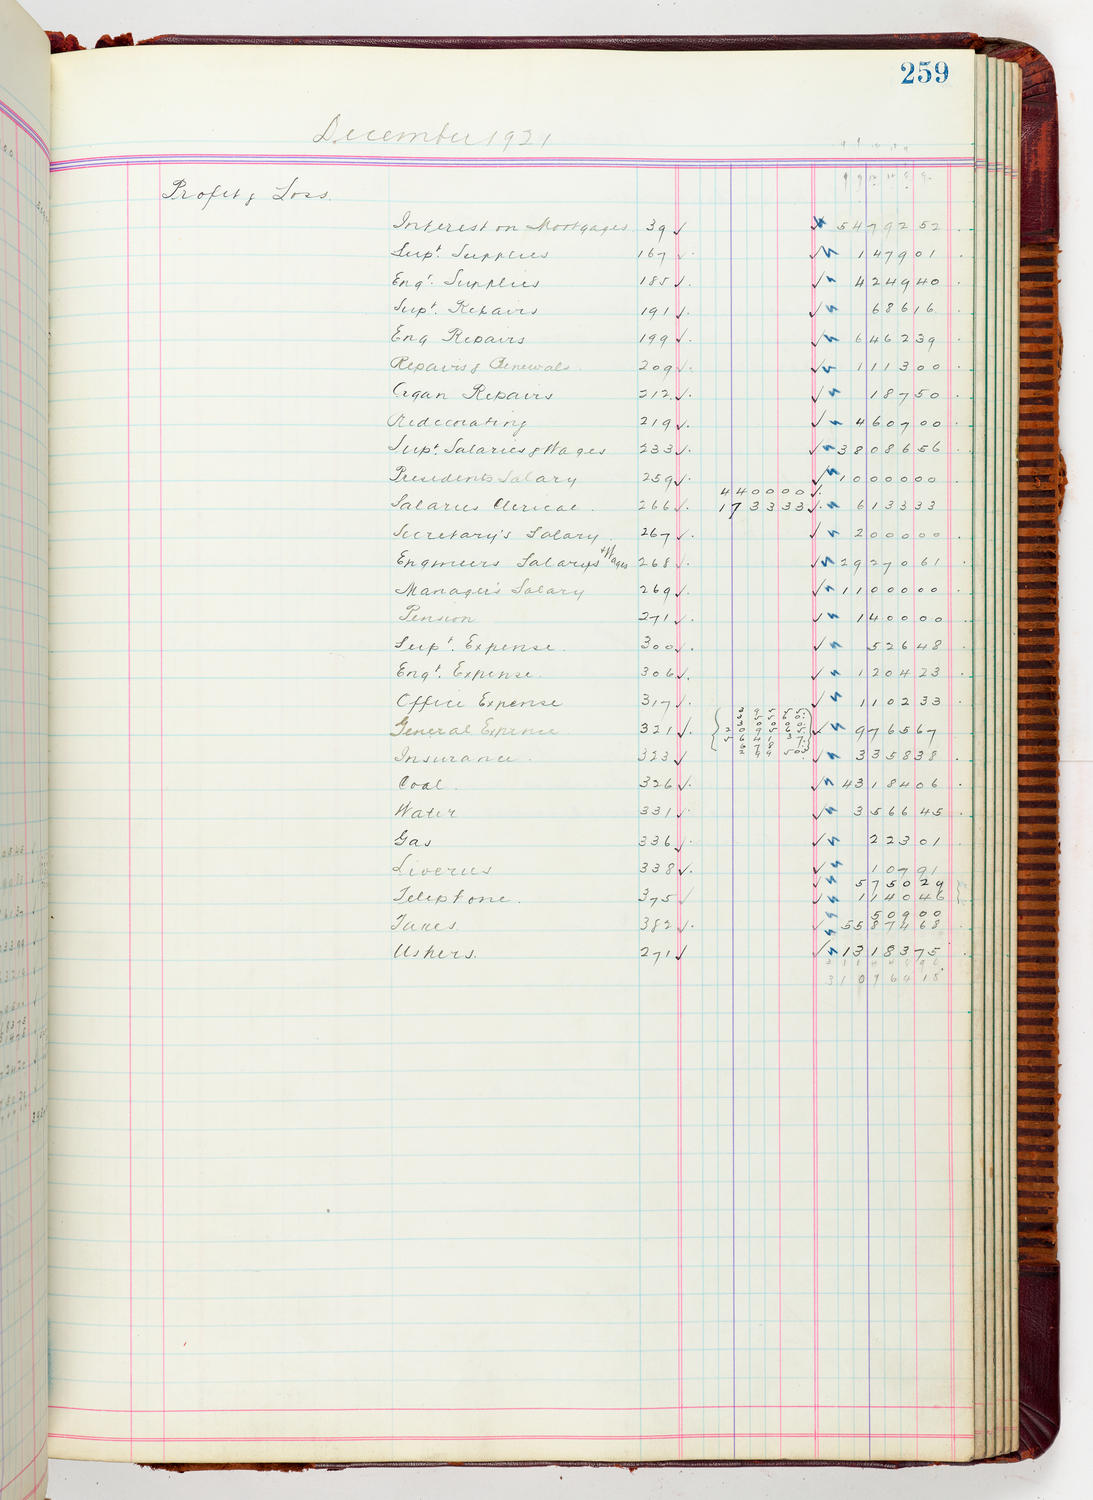 259
December 1921
Profit & Loss.
Interest on Mortgages 39 54792 52
Supt. Supplies 167 1479 01
Engr. Supplies 185 4249 40
Supt. Repairs 191 686 16
Eng Repairs 199 6462 39
Repairs & Renewals 209 1113 00
Organ Repairs 212 187 50
Redecorating 219 4607 00
Supt. Salaries & Wages 233 38086 56
Presidents Salary 259 10000 00
4400 00
Salaries Clerical 266 1733 33 6133 33
Secretary's Salary 267 2000 00
Engineers Salarys + Wages 268 29270 61
Managers Salary 269 11000 00
Pension 271 1400 00
Supt. Expense 300 526 48
Engr. Expense 306 1204 23
Office Expense 317 1102 33
General Expense 321 9765 67
Insurance 323 3358 38
Coal 326 43184 06
Water 331 3566 45
Gas 336 223 01
Liveries 338 107 91
5750 29
Telephone. 375 1140 46
509 00
Taxes 382 55874 68
Ushers. 271 13183 75
310964 18